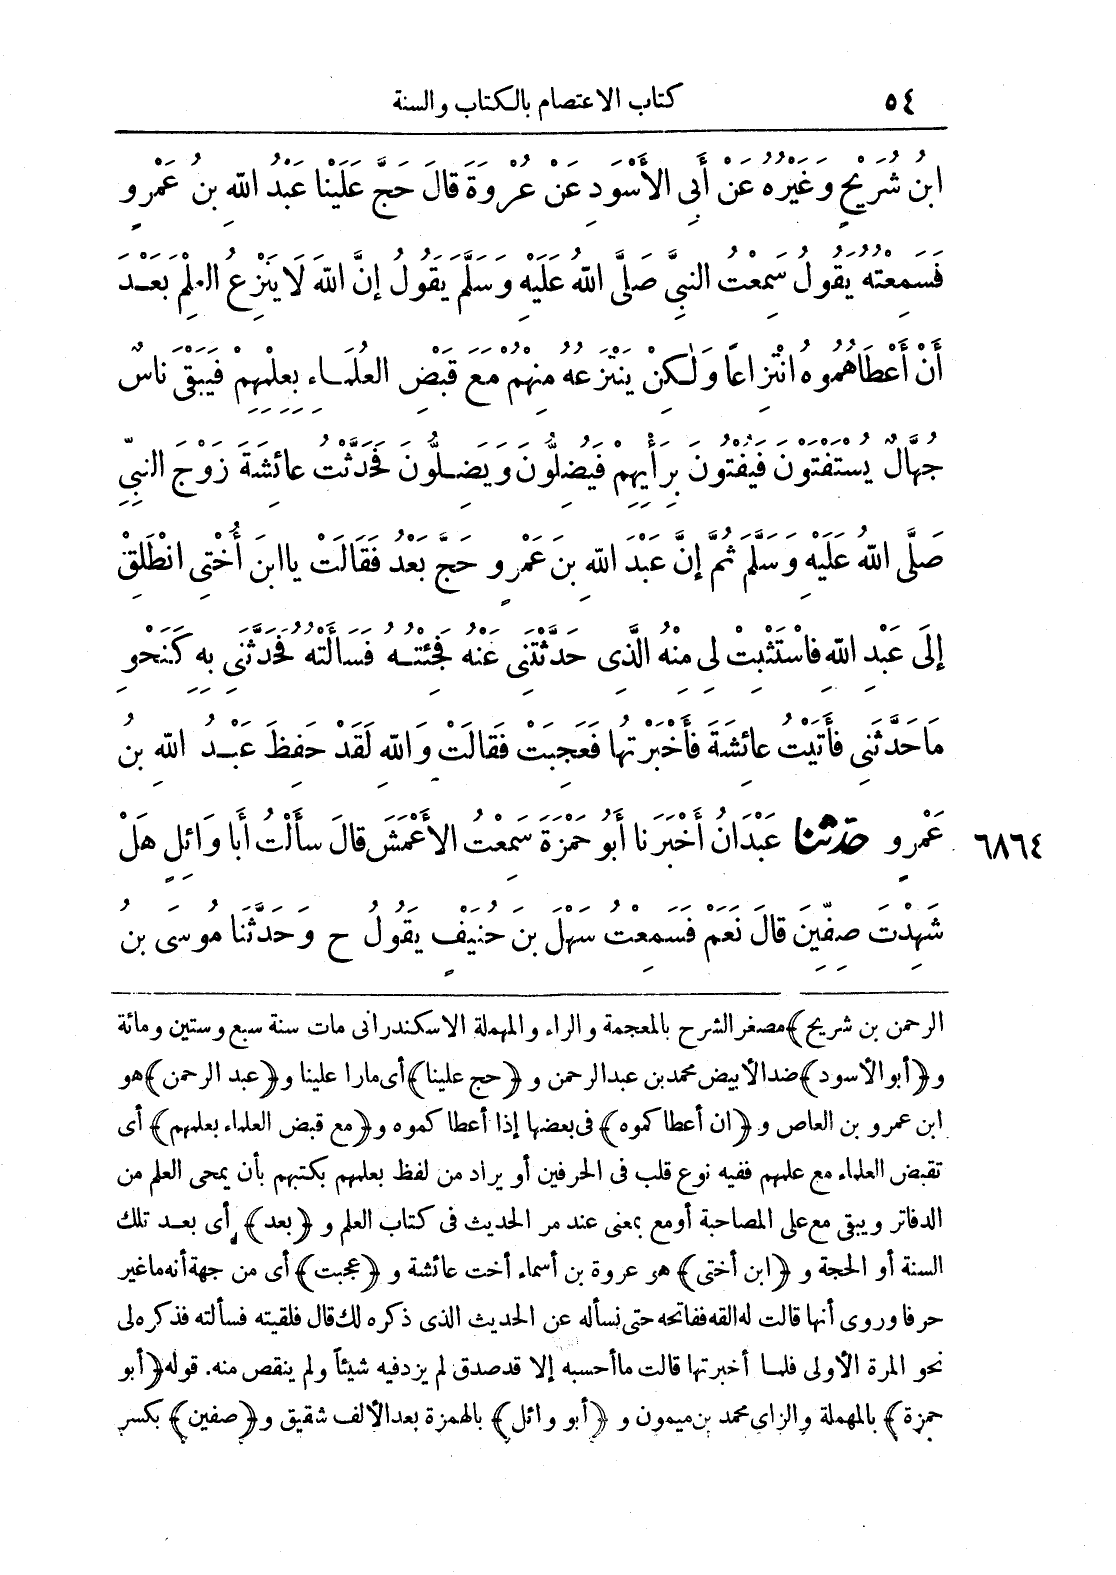 ٥٤ كتاب الاعتصام بالكتاب والسنة
ابْنُ شُرَيْحٍ وَغَيْرُهُ عَنْ أَبِي الأَسْوَدِ عَنْ عُرْوَةَ قَالَ حَجَّ عَلَيْنَا عَبْدُ اللهِ بنُ عَمْرٍو
فَسَمِعْتُهُ يَقُولُ سَمِعْتُ النبيَّ صَلَّى اللهُ عَلَيْهِ وَسَلَّمَ يَقُولُ إِنَّ اللهَ لَا يَنْزِعُ العِلْمَ بَعْدَ
أَنْ أَعْطَاهُمُوهُ انْتِزَاعًا وَلٰكِنْ يَنْتَزِعُهُ مِنْهُمْ مَعَ قَبْضِ العُلَمَاءِ بِعِلْمِهِمْ فَيَبْقَى نَاسٌ
جُهَّالٌ يُسْتَفْتَوْنَ فَيُفْتُونَ بِرَأْيِهِمْ فَيُضِلُّونَ وَيَضِلُّونَ فَحَدَّثْتُ عَائِشَةَ زَوْجَ النبيِّ
صَلَّى اللهُ عَلَيْهِ وَسَلَّمَ ثُمَّ إِنَّ عَبْدَ اللهِ بنَ عَمْرٍو حَجَّ بَعْدُ فَقَالَتْ يَا ابنَ أُخْتِي انْطَلِقْ
إِلَى عَبْدِ اللهِ فَاسْتَثْبِتْ لِي مِنْهُ الَّذِي حَدَّثْتَنِي عَنْهُ فَجِئْتُهُ فَسَأَلْتُهُ فَحَدَّثَنِي بِهِ كَنَحْوِ
مَا حَدَّثَنِي فَأَتَيْتُ عَائِشَةَ فَأَخْبَرْتُهَا فَعَجِبَتْ فَقَالَتْ وَاللهِ لَقَدْ حَفِظَ عَبْدُ اللهِ بنُ
٦٨٦٤ عَمْرٍو حَدَّثَنَا عَبْدَانُ أَخْبَرَنَا أَبُو حَمْزَةَ سَمِعْتُ الأَعْمَشَ قَالَ سَأَلْتُ أَبَا وَائِلٍ هَلْ
شَهِدْتَ صِفِّينَ قَالَ نَعَمْ فَسَمِعْتُ سَهْلَ بنَ حُنَيْفٍ يَقُولُ ح وَحَدَّثَنَا مُوسَى بنُ
الرحمن بن شريح﴾ مصغر الشرح بالمعجمة والراء والمهملة الاسكندراني مات سنة سبع وستين ومائة
و﴿أبو الأسود﴾ ضد الأبيض محمد بن عبد الرحمن و ﴿حج علينا﴾ أى مارا علينا و﴿عبد الرحمن﴾ هو
ابن عمرو بن العاص و ﴿ان أعطاكموه﴾ فى بعضها إذا أعطاكموه و﴿مع قبض العلماء بعلمهم﴾ أى
تقبض العلماء مع علمهم ففيه نوع قلب فى الحرفين أو يراد من لفظ بعلمهم بكتبهم بأن يمحى العلم من
الدفاتر ويبقى مع على المصاحبة أو مع بمعنى عند مر الحديث فى كتاب العلم و ﴿بعد﴾ أى بعد تلك
السنة أو الحجة و ﴿ابن أختى﴾ هو عروة بن أسماء أخت عائشة و ﴿عجبت﴾ أى من جهة أنه ما غير
حرفا وروى أنها قالت له القه ففاتحه حتى نسأله عن الحديث الذى ذكره لك قال فلقيته فسألته فذكره لى
نحو المرة الأولى فلما أخبرتها قالت ما أحسبه إلا قد صدق لم يزد فيه شيئاً ولم ينقص منه. قوله ﴿أبو
حمزة﴾ بالمهملة والزاى محمد بن ميمون و ﴿أبو وائل﴾ بالهمزة بعد الألف شقيق و﴿صفين﴾ بكسر